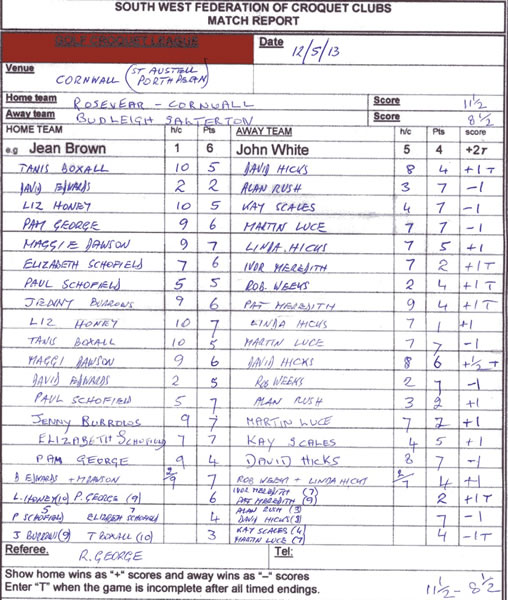 SOUTH WEST FEDERATION OF CROQUET CLUBS
MATCH REPORT
GOLF CROQUET LEAGUE Date 12/5/13
Venue CORNWALL (ST AUSTELL PORTHPEAN)
Home team ROSEVEAR - CORNWALL Score 11½
Away team BUDLEIGH SALTERTON Score 8½
HOME TEAM h/c Pts AWAY TEAM h/c Pts score
e.g Jean Brown 1 6 John White 5 4 +2T
TANIS BOXALL 10 5 DAVID HICKS 8 4 +1 T
DAVID EDWARDS 2 2 ALAN RUSH 3 7 -1
LIZ HONEY 10 5 KAY SCALES 4 7 -1
PAM GEORGE 9 6 MARTIN LUCE 7 7 -1
MAGGIE DAWSON 9 7 LINDA HICKS 7 5 +1
ELIZABETH SCHOFIELD 7 6 IVOR MEREDITH 7 2 +1 T
PAUL SCHOFIELD 5 5 ROB WEEKS 2 4 +1 T
JENNY BURROWS 9 6 PAT MEREDITH 9 4 +1 T
LIZ HONEY 10 7 LINDA HICKS 7 1 +1
TANIS BOXALL 10 5 MARTIN LUCE 7 7 -1
MAGGI DAWSON 9 6 DAVID HICKS 8 6 +½ T
DAVID EDWARDS 2 5 ROB WEEKS 2 7 -1
PAUL SCHOFIELD 5 7 ALAN RUSH 3 2 +1
JENNY BURROWS 9 7 MARTIN LUCE 7 2 +1
ELIZABETH SCHOFIELD 7 7 KAY SCALES 4 5 +1
PAM GEORGE 9 4 DAVID HICKS 8 7 -1
D EDWARDS + M DAWSON 2/9 7 ROB WEEKS + LINDA HICKS 2/7 4 +1
L. HONEY (10) P. GEORGE (9) 6 IVOR MEREDITH (7) PAT MEREDITH (9) 2 +1 T
P SCHOFIELD 5 ELIZABETH SCHOFIELD 7 4 ALAN RUSH (3) DAVID HICKS (8) 7 -1
J BURROWS (9) T BOXALL (10) 3 KAY SCALES (4) MARTIN LUCE (7) 4 -1 T
Referee. R. GEORGE Tel:
Show home wins as "+" scores and away wins as "–" scores
Enter "T" when the game is incomplete after all timed endings.
11½ - 8½